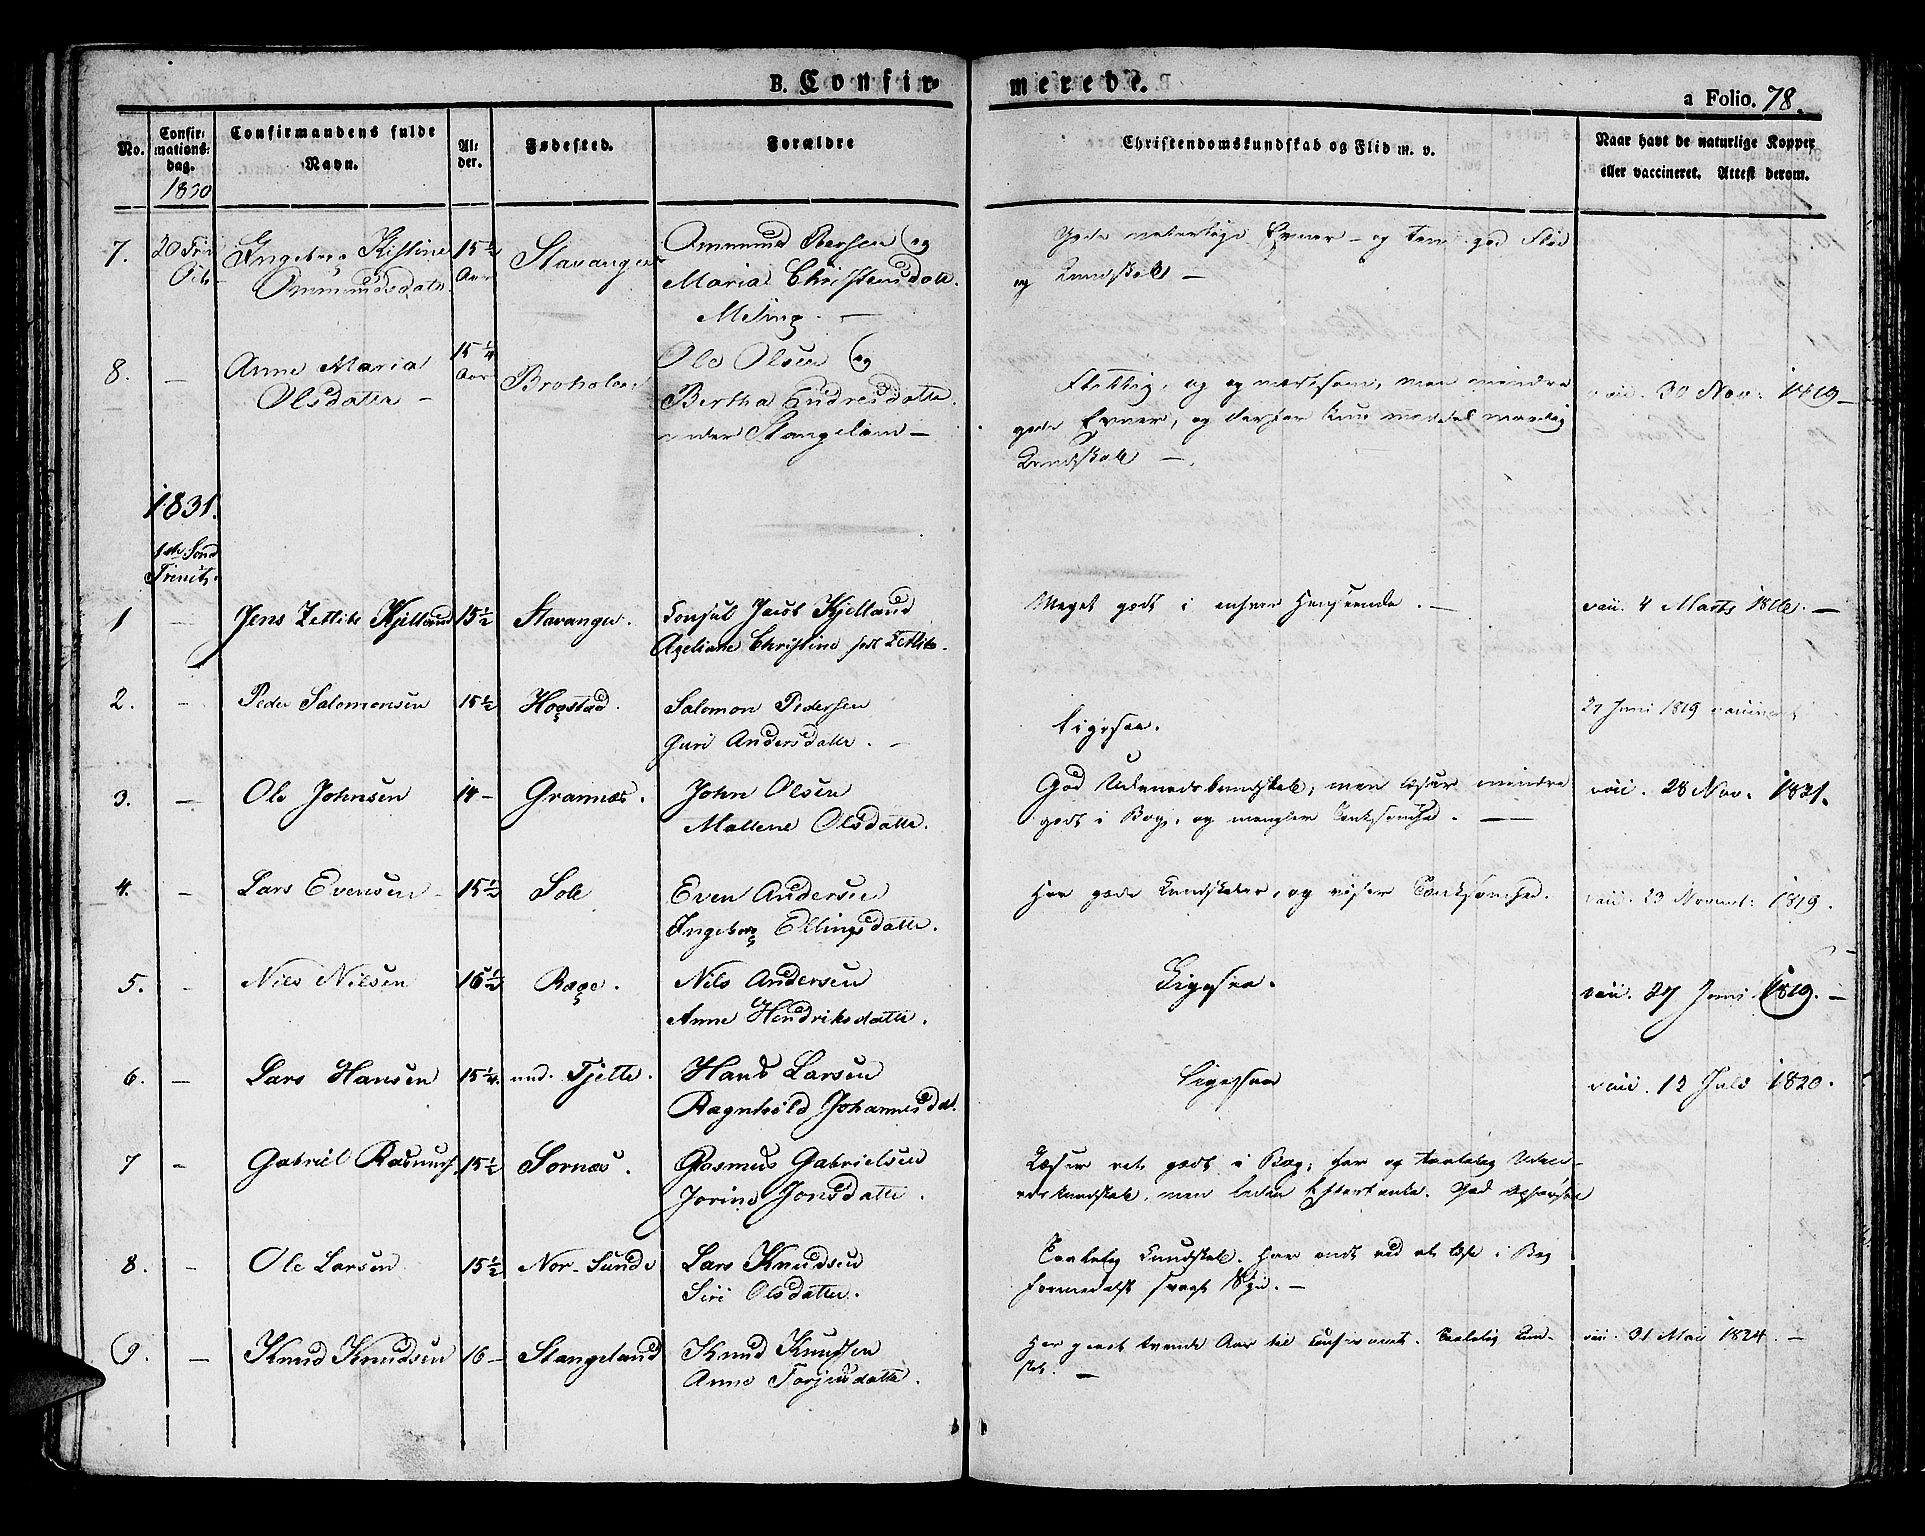 B. Confir-
merede.
a Folio. 78.
No.
Confir-
mations-
dag.
1830
Confirmandens fulde
Navn.
Al-
der.
Fødested.
Forældre
Christendomskundskab og Flid m. v.
Naar havt de naturlige Kopper
eller vaccineret. Attest derom.
7.
20
Ingeborg Kistine
Ommundsdatt.
15 1/2
Aar
Stavanger
Ommund Iversen og
Maria Christensdatt.
Meling. —
Gode naturlige Evner — og
og Kundskab —
8.
—
Anne Maria
Olsdatter —
15 1/4
Aar
Ole Olsen og
Bertha Endresdatter.
under Stangeland —
Flittig, og opmærksom, men mindre
gode Evner, og derfor kun maadelig
Kundskab —.
vac. 30 Nov. 1819 —
1831.
1ste Sønd
Trinit.
1
—
Jens Zetlitz Kjelland
15 1/2
Stavanger.
Consul Jacob Kjelland
Axeliane Christine født Zetlitz.
Meget godt i enhver Henseende. —
vac. 4 Marts —
2.
—
Peder Salomonsen
15 1/2
Hogstad.
Salomon Pedersen
Guri Andersdatter. —
Ligesaa.
27 Juni 1819 vaccineret
3.
—
Ole Johnsen
14 —
Grannæs.
John Olsen
Mallene Olsdatter.
God Udenadskundskab, men læser mindre
godt i Bog, og mangler Tænksomhed. —
vac. 28 Nov. 1821.
4.
—
Lars Evensen
15 1/2
Sole
Even Andersen
Ingeborg Ellingsdatter.
Har gode Kundskaber, og viser Tænksomhed.
vac. 23 Novemb. 1819.
5.
—
Nils Nilsen
16 1/2
Ræge.
Nils Andersen
Anne Hendriksdatter.
Ligesaa.
vac. 27 Juni 1819. —
6.
—
Lars Hansen
15 1/2
und. Tjelte.
Hans Larsen
Ragnhild Johannesdat.
Ligesaa
vac. 12 Juli 1820.
7
—
Gabriel Rasmus.
15 1/2
Sørnæs.
Rasmus Gabrielsen
Jorine Jonsdatter.
Læser ret godt i Bog; har og taalelig Uden-
adskundskab, men liden Eftertanke. God Opførsel
8.
—
Ole Larsen
15 1/2
Nor-Sunde
Lars Knudsen
Siri Olsdatter.
Taalelig Kundskab. Har ondt ved at læse i Bog
formedelst svagt Syn. —
9.
—
Knud Knudsen
16 —
Stangeland
Knud Knudsen
Anne Torjersdatter.
Har gaaet tvende Aar til Confirmant. Taalelig Kund-
skab. —
vac. 31 Mai 1824. —